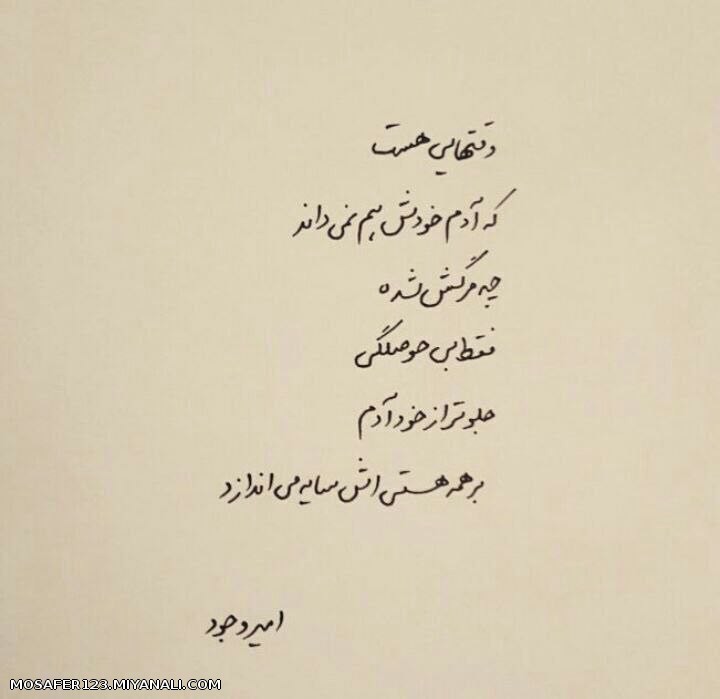 وقتهایی هست
که آدم خودش هم نمی داند
چه مرگش شده
فقط بی حوصلگی
جلوتر از خود آدم
بر همه هستی اش سایه می اندازد
امیر وجود
MOSAFER123.MIYANALI.COM